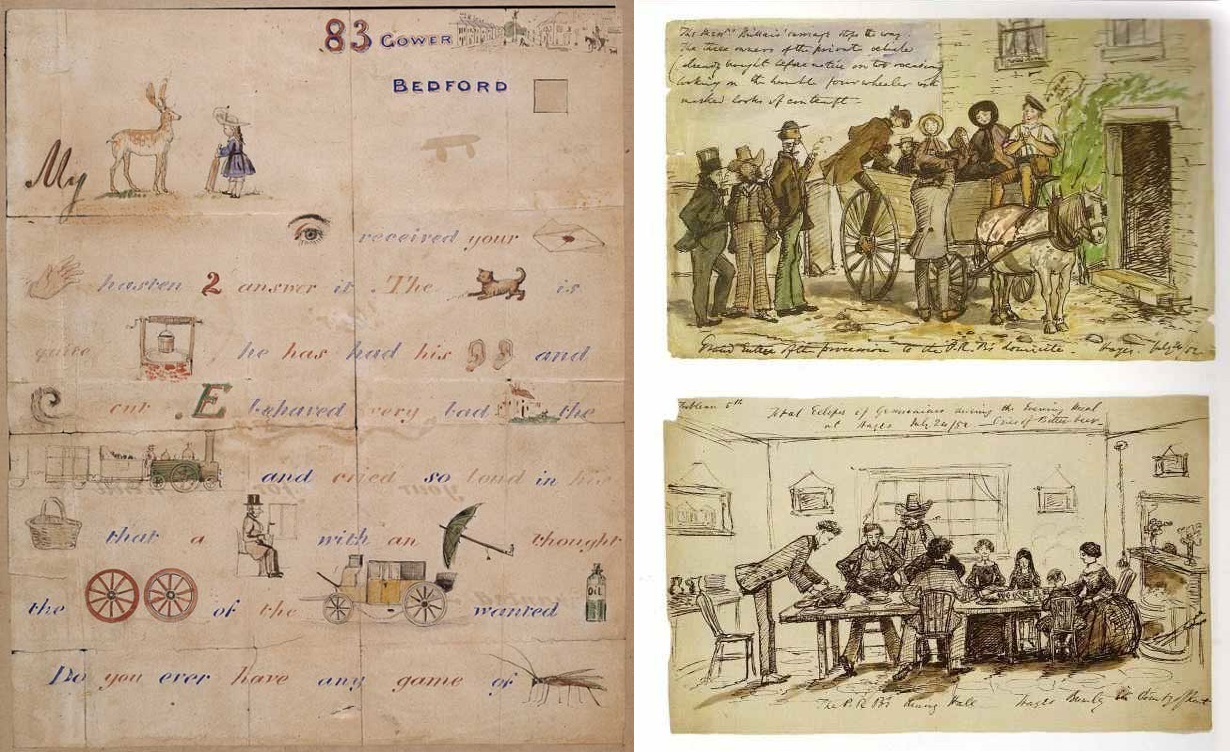 83 GOWER
BEDFORD
My
received your
hasten 2 answer it . The is
quite he has had his and
cut . E behaved very bad the
and cried so loud in his
that a with an thought
the of the wanted
OIL
Do you ever have any game of
The three owners of the private vehicle
looking on the humble four wheeler with
marked looks of contempt
Grand Entree of the procession to the P.R.B's domicile . Hayes . July /52
Tableau 5th
Total Eclipse of during the Evening Meal
at Hayes July 24/52 of Bitter beer
The P.R.B's Dining Hall Hayes County of Kent